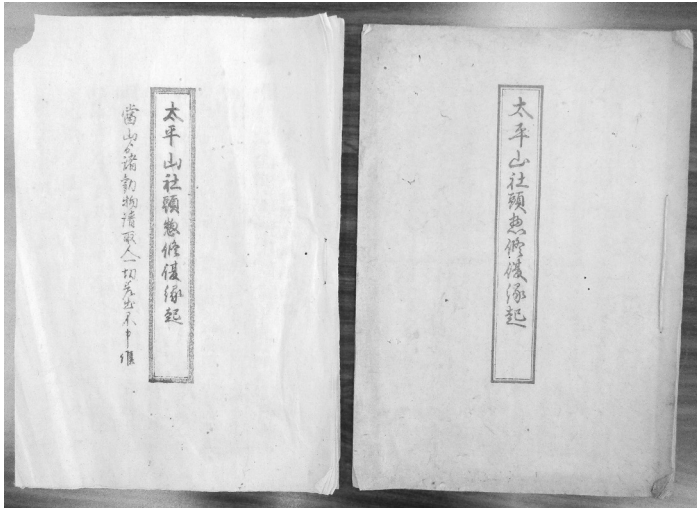 太平山社頭惣修復縁起
太平山社頭惣修復縁起
當山ゟ諸勧物請取人一切差出不申候